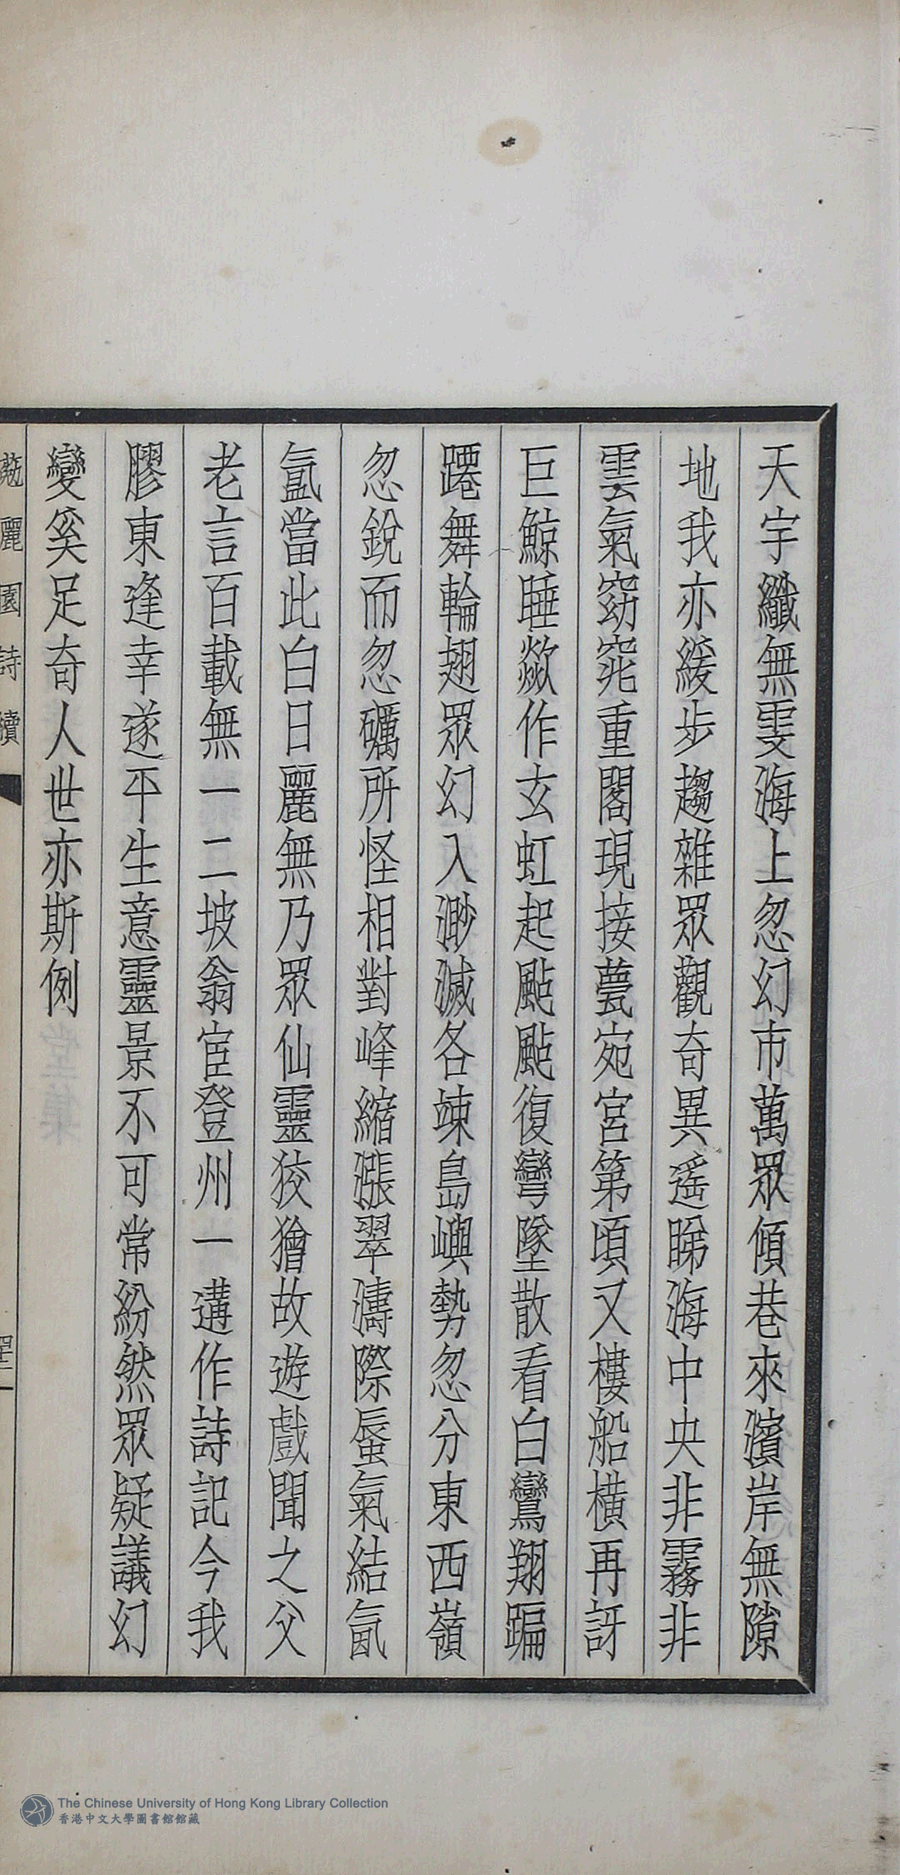 天宇纖無雯海上忽幻市萬眾傾巷來濱岸無隙
地我亦緩步趨雜眾觀奇異遥睇海中央非霧非
雲氣窈窕重閣現接甍宛宮第頃又樓船橫再訝
巨鯨睡歘作玄虹起颭颭復彎墜散看白鸞翔蹁
躚舞輪翅眾幻入渺滅各竦島嶼勢忽分東西嶺
忽銳而忽礪所怪相對峰縮漲翠濤際蜃氣結氤
氳當此白日麗無乃眾仙靈狡獪故遊戲聞之父
老言百載無一二坡翁宦登州一遘作詩記今我
膠東逢幸遂平生意靈景不可常紛然眾疑議幻
變奚足奇人世亦斯例
麗園詩續
The Chinese University of Hong Kong Library Collection
香港中文大學圖書館館藏